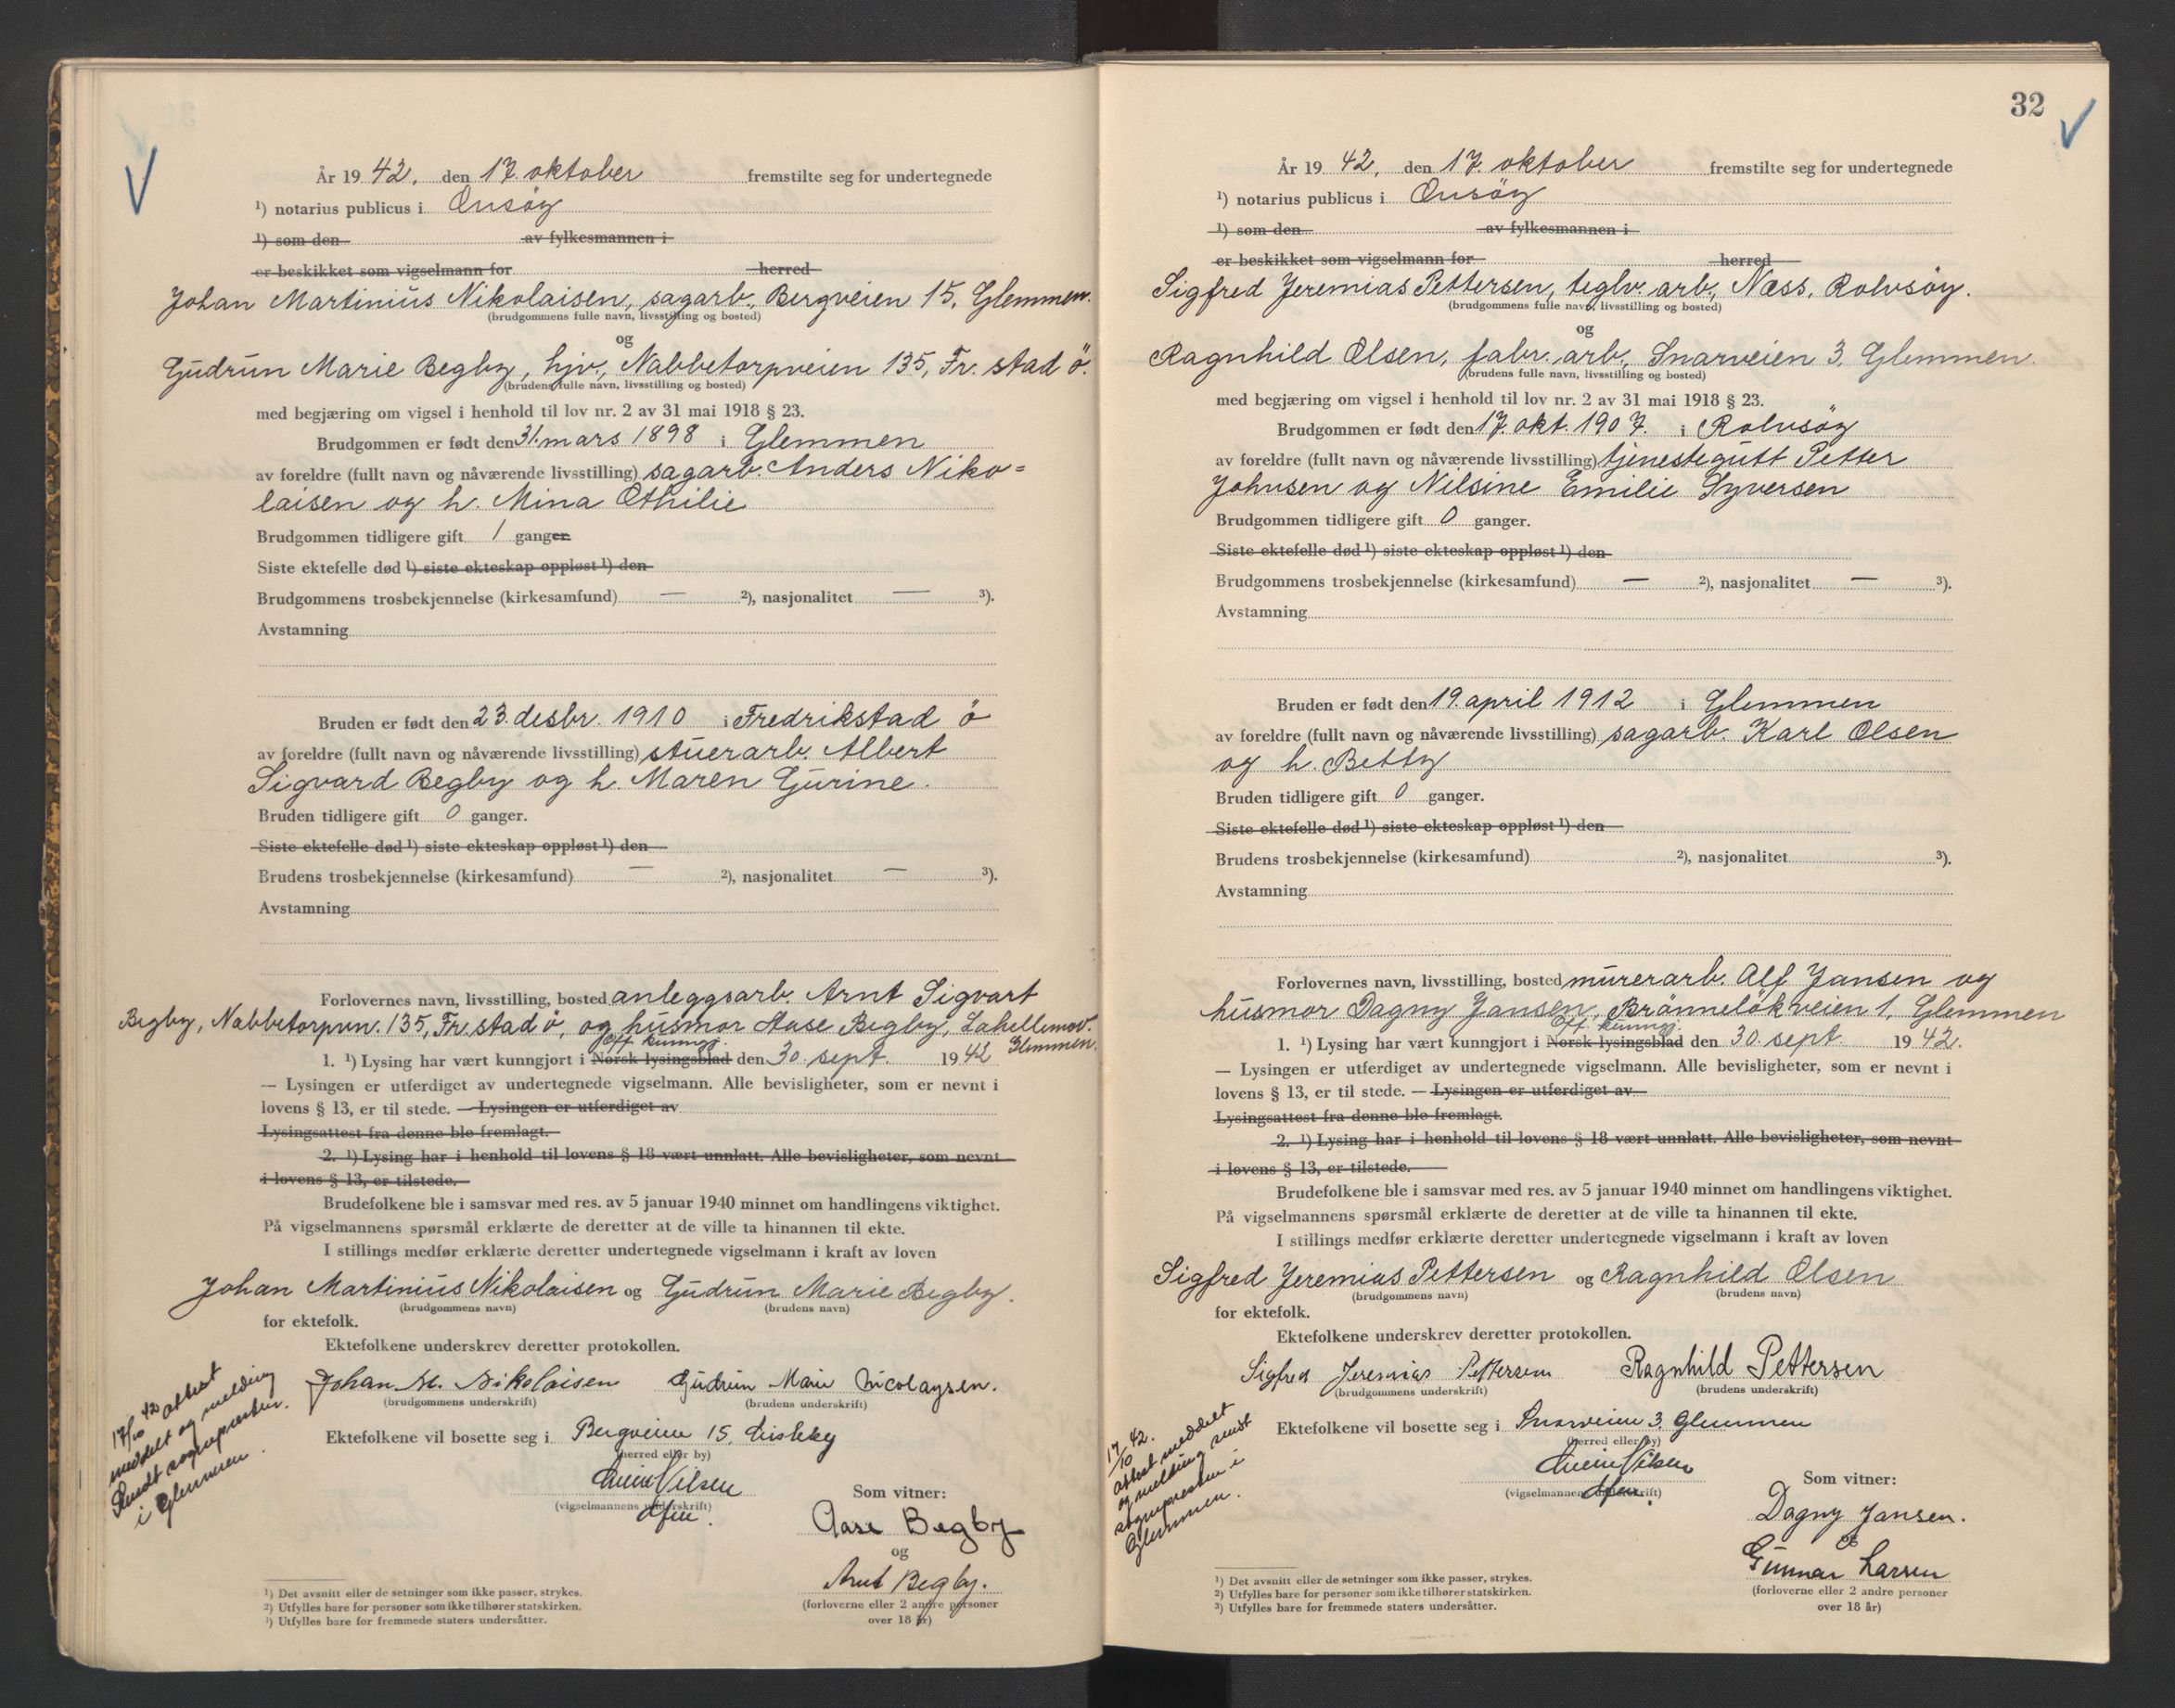 År 19 42, den 17. oktober fremstilte seg for undertegnede
¹) notarius publicus i Onsöy
¹) som den av fylkesmannen i
er beskikket som vigselmann for herred
Johan Martinius Nikolaisen, sagarb., Bergveien 15, Glemmen.
(brudgommens fulle navn, livsstilling og bosted)
og
Gudrun Marie Begby, hjv., Nabbetorpveien 135, Fr.stad ö.
(brudens fulle navn, livsstilling og bosted)
med begjæring om vigsel i henhold til lov nr. 2 av 31 mai 1918 § 23.
Brudgommen er født den 31. mars 1898 i Glemmen
av foreldre (fullt navn og nåværende livsstilling) sagarb. Anders Niko=
laisen og h. Mina Othilie
Brudgommen tidligere gift 1 ganger
Siste ektefelle død ¹) siste ekteskap oppløst ¹) den
Brudgommens trosbekjennelse (kirkesamfund) — ²), nasjonalitet — ³).
Avstamning
Bruden er født den 23. desbr. 1910 i Fredrikstad ö
av foreldre (fullt navn og nåværende livsstilling) stuerarb. Albert
Sigvard Begby og h. Maren Gurine.
Bruden tidligere gift 0 ganger.
Siste ektefelle død ¹) siste ekteskap oppløst ¹) den
Brudens trosbekjennelse (kirkesamfund) — ²), nasjonalitet — ³).
Avstamning
Forlovernes navn, livsstilling, bosted anleggsarb. Arnt Sigvart
Begby, Nabbetorpvn. 135, Fr.stad ö, og husmor Aase Begby, Lahellemov.
off. kunngj. Glemmen.
1. ¹) Lysing har vært kunngjort i Norsk lysingsblad den 30. sept. 1942
— Lysingen er utferdiget av undertegnede vigselmann. Alle bevisligheter, som er nevnt i
lovens § 13, er til stede. — Lysingen er utferdiget av
Lysingsattest fra denne ble fremlagt.
2. ¹) Lysing har i henhold til lovens § 18 vært unnlatt. Alle bevisligheter, som nevnt
i lovens § 13, er tilstede.
Brudefolkene ble i samsvar med res. av 5 januar 1940 minnet om handlingens viktighet.
På vigselmannens spørsmål erklærte de deretter at de ville ta hinannen til ekte.
I stillings medfør erklærte deretter undertegnede vigselmann i kraft av loven
Johan Martinius Nikolaisen og Gudrun Marie Begby.
(brudgommens navn) (brudens navn)
for ektefolk.
Ektefolkene underskrev deretter protokollen.
Johan M. Nikolaisen Gudrun Marie Nicolaysen.
(brudgommens underskrift) (brudens underskrift)
Ektefolkene vil bosette seg i Bergveien 15,
(herred eller by)
Nilsen
(vigselmannens underskrift)
Som vitner:
Aase Begby
og
Arnt Begby.
(forloverne eller 2 andre personer
over 18 år)
17/10 42 attest
meddelt og melding
sendt sognepresten
i Glemmen.
¹) Det avsnitt eller de setninger som ikke passer, strykes.
²) Utfylles bare for personer som ikke tilhører statskirken.
³) Utfylles bare for fremmede staters undersåtter.
32
År 19 42, den 17. oktober fremstilte seg for undertegnede
¹) notarius publicus i Onsöy
¹) som den av fylkesmannen i
er beskikket som vigselmann for herred
Sigfred Jeremias Pettersen, teglv. arb., Næss, Rolvsöy.
(brudgommens fulle navn, livsstilling og bosted)
og
Ragnhild Olsen, fabr. arb., Snarveien 3, Glemmen.
(brudens fulle navn, livsstilling og bosted)
med begjæring om vigsel i henhold til lov nr. 2 av 31 mai 1918 § 23.
Brudgommen er født den 17. okt. 1907. i Rolvsöy
av foreldre (fullt navn og nåværende livsstilling) tjenestegutt Petter
Johnsen og Nilsine Emilie Syversen
Brudgommen tidligere gift 0 ganger.
Siste ektefelle død ¹) siste ekteskap oppløst ¹) den
Brudgommens trosbekjennelse (kirkesamfund) — ²), nasjonalitet — ³).
Avstamning
Bruden er født den 19. april 1912 i Glemmen
av foreldre (fullt navn og nåværende livsstilling) sagarb. Karl Olsen
og h. Betty
Bruden tidligere gift 0 ganger.
Siste ektefelle død ¹) siste ekteskap oppløst ¹) den
Brudens trosbekjennelse (kirkesamfund) ²), nasjonalitet ³).
Avstamning
Forlovernes navn, livsstilling, bosted murerarb. Alf Jansen og
husmor Dagny Jansen, Bränneløkveien 1, Glemmen
off. kunngj.
1. ¹) Lysing har vært kunngjort i Norsk lysingsblad den 30. sept. 1942.
— Lysingen er utferdiget av undertegnede vigselmann. Alle bevisligheter, som er nevnt i
lovens § 13, er til stede. — Lysingen er utferdiget av
Lysingsattest fra denne ble fremlagt.
2. ¹) Lysing har i henhold til lovens § 18 vært unnlatt. Alle bevisligheter, som nevnt
i lovens § 13, er tilstede.
Brudefolkene ble i samsvar med res. av 5 januar 1940 minnet om handlingens viktighet.
På vigselmannens spørsmål erklærte de deretter at de ville ta hinannen til ekte.
I stillings medfør erklærte deretter undertegnede vigselmann i kraft av loven
Sigfred Jeremias Pettersen og Ragnhild Olsen
(brudgommens navn) (brudens navn)
for ektefolk.
Ektefolkene underskrev deretter protokollen.
Sigfred Jeremias Pettersen Ragnhild Pettersen
(brudgommens underskrift) (brudens underskrift)
Ektefolkene vil bosette seg i Snarveien 3, Glemmen
(herred eller by)
Nilsen
(vigselmannens underskrift)
Som vitner:
Dagny Jansen.
og
Gunnar Larsen
(forloverne eller 2 andre personer
over 18 år)
17/10 42.
attest meddelt
og melding sendt
sognepresten i
Glemmen.
¹) Det avsnitt eller de setninger som ikke passer, strykes.
²) Utfylles bare for personer som ikke tilhører statskirken.
³) Utfylles bare for fremmede staters undersåtter.